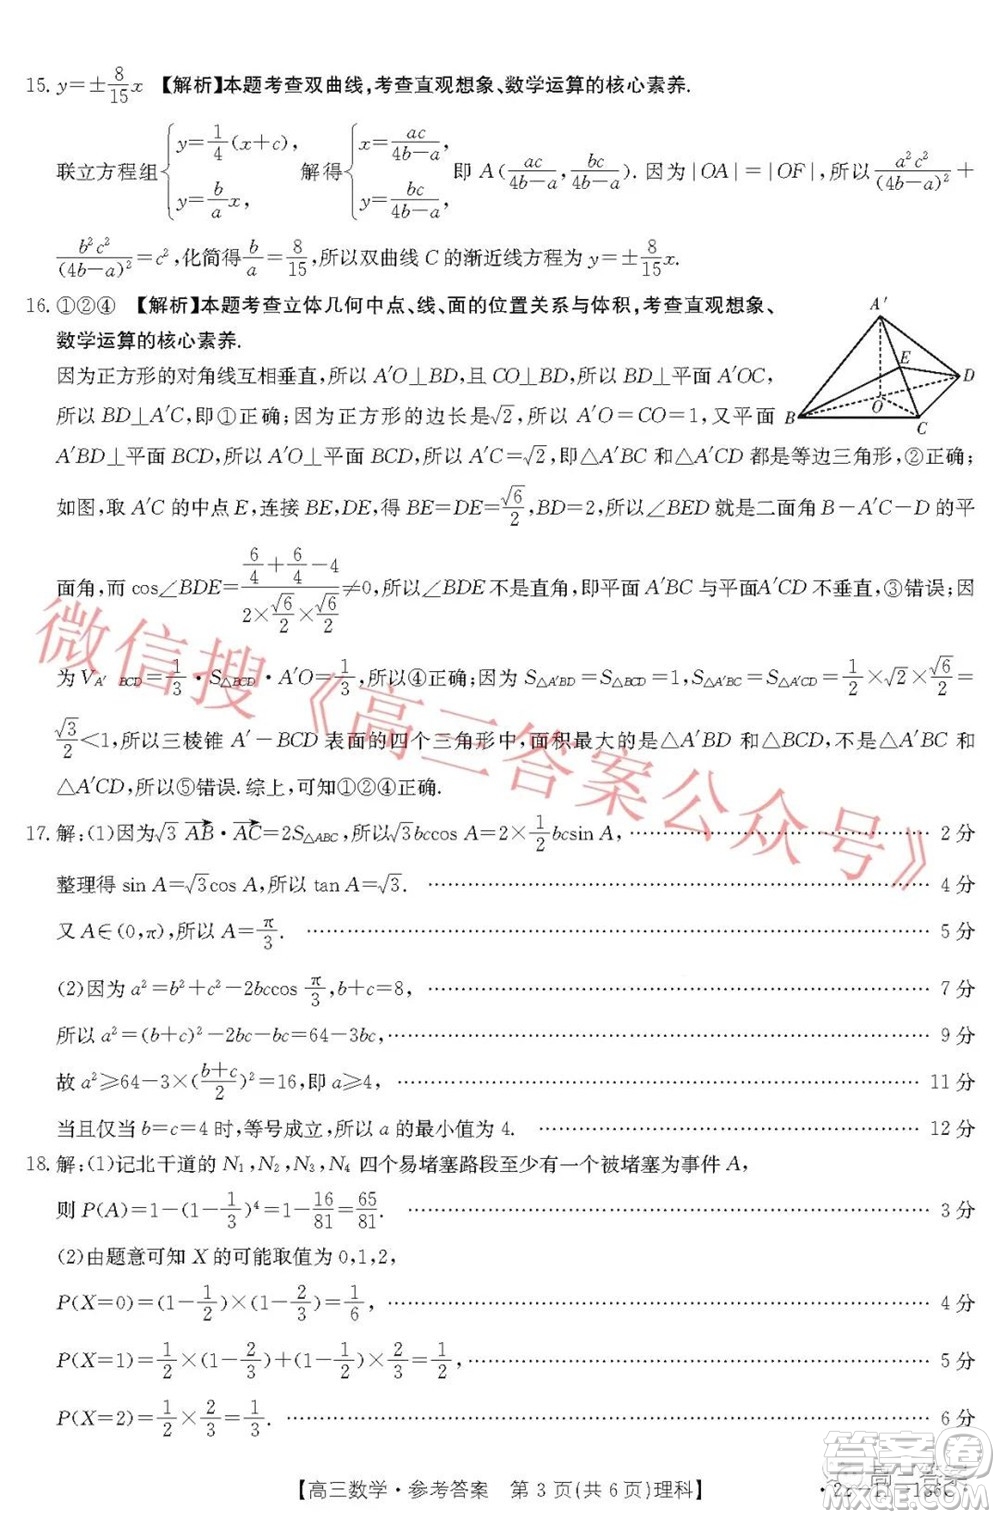 15. y=±8/15x 【解析】本题考查双曲线,考查直观想象、数学运算的核心素养.
联立方程组{y=1/4(x+c), y=b/a x, 解得{x=ac/(4b-a), y=bc/(4b-a), 即 A(ac/(4b-a), bc/(4b-a)). 因为|OA|=|OF|, 所以 a²c²/(4b-a)² +
b²c²/(4b-a)²=c², 化简得 b/a=8/15, 所以双曲线 C 的渐近线方程为 y=±8/15x.
16. ①②④ 【解析】本题考查立体几何中点、线、面的位置关系与体积,考查直观想象、
数学运算的核心素养.
因为正方形的对角线互相垂直,所以 A′O⊥BD,且 CO⊥BD,所以 BD⊥平面 A′OC,
所以 BD⊥A′C,即①正确;因为正方形的边长是√2,所以 A′O=CO=1,又平面
A′BD⊥平面 BCD,所以 A′O⊥平面 BCD,所以 A′C=√2,即△A′BC 和△A′CD 都是等边三角形,②正确;
如图,取 A′C 的中点 E,连接 BE,DE,则 BE=DE=√6/2,BD=2,所以∠BED 就是二面角 B-A′C-D 的平
面角,而 cos∠BDE=(6/4+6/4-4)/(2×√6/2×√6/2)≠0,所以∠BED 不是直角,即平面 A′BC 与平面 A′CD 不垂直,③错误;因
为 V_{A′ BCD}=1/3·S△BCD·A′O=1/3,所以④正确;因为 S△A′BD=S△BCD=1,S△A′BC=S△A′CD=1/2×√2×√6/2=
√3/2<1,所以三棱锥 A′-BCD 表面的四个三角形中,面积最大的是△A′BD 和△BCD,不是△A′BC 和
△A′CD,所以⑤错误.综上,可知①②④正确.
A′
E
D
B
O
C
17. 解:(1)因为√3 AB·AC=2S△ABC,所以√3bccos A=2×1/2bcsin A, ………… 2 分
整理得 sin A=√3cos A,所以 tan A=√3. ………… 4 分
又 A∈(0,π),所以 A=π/3. ………… 5 分
(2)因为 a²=b²+c²-2bccos π/3,b+c=8, ………… 7 分
所以 a²=(b+c)²-2bc-bc=64-3bc, ………… 9 分
故 a²≥64-3×((b+c)/2)²=16,即 a≥4, ………… 11 分
当且仅当 b=c=4 时,等号成立,所以 a 的最小值为 4. ………… 12 分
18. 解:(1)记北干道的 N₁,N₂,N₃,N₄ 四个易堵塞路段至少有一个被堵塞为事件 A,
则 P(A)=1-(1-1/3)⁴=1-16/81=65/81. ………… 3 分
(2)由题意可知 X 的可能取值为 0,1,2,
P(X=0)=(1-1/2)×(1-2/3)=1/6, ………… 4 分
P(X=1)=1/2×(1-2/3)+(1-1/2)×2/3=1/2, ………… 5 分
P(X=2)=1/2×2/3=1/3. ………… 6 分
微信搜《高三答案公众号》
【高三数学·参考答案 第 3 页(共 6 页)理科】